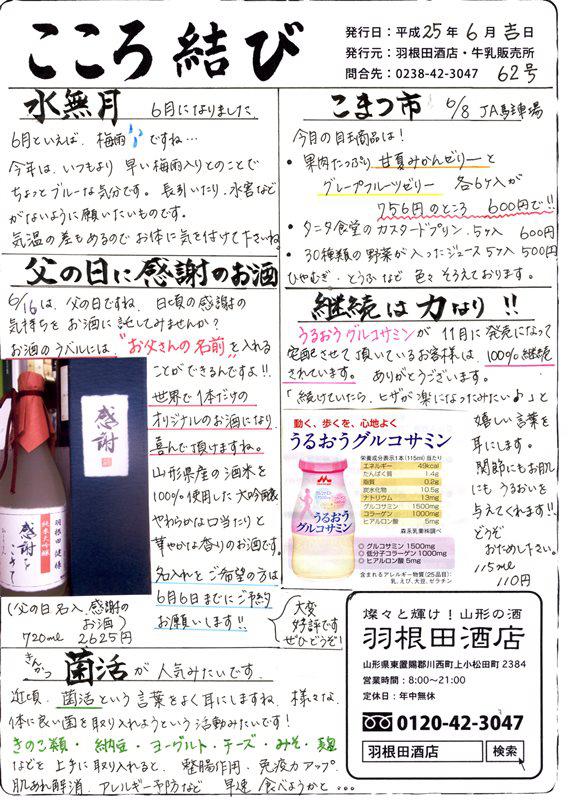 こころ結び
発行日：平成25年6月吉日
発行元：羽根田酒店・牛乳販売所
問合先：0238-42-3047 62号
水無月 6月になりました
6月といえば、梅雨ですね…
今年は、いつもより早い梅雨入りとのことで
ちょっとブルーな気分です。長引いたり、水害など
がないように願いたいものです。
気温の差もあるのでお体に気を付けて下さいね
父の日に感謝のお酒
6/16は、父の日ですね。日頃の感謝の
気持ちをお酒に託してみませんか？
お酒のラベルには、"お父さんの名前"を入れる
ことができるんですよ!!
世界で1本だけの
オリジナルのお酒になり
喜んで頂けますね。
山形県産の酒米を
100%使用した大吟醸
やわらかな口当たりと
華やかな香りのお酒です。
名入れをご希望の方は
6月6日までにご予約
お願いします!!
大変
好評です
ぜひどうぞ！
感謝
純米大吟醸
感謝
羽根田
(父の日名入、感謝の
お酒)
720ml 2625円
きんかつ
菌活が人気みたいです。
近頃、菌活という言葉をよく耳にしますね。様々な、
体に良い菌を取り入れようという活動みたいです！
きのこ類・納豆・ヨーグルト・チーズ・みそ・麹
などと上手に取り入れると、整腸作用、免疫力アップ
肌あれ解消、アレルギー予防など 早速食べようかと…
こまつ市 6/8 JA馬連場
今月の目玉商品は！
・果肉たっぷり甘夏みかんゼリーと
グレープフルーツゼリー 各6ヶ入が
756円のところ 600円で!!
・タニタ食堂のカスタードプリン、5ヶ入 600円
・30種類の野菜が入ったジュース5ヶ入500円
ひやむぎ、とうふなど色々そろえております。
継続は力なり!!
うるおうグルコサミンが11月に発売になって
宅配させて頂いているお客様は、100%継続
されています。ありがとうございます。
「続けていたら、ヒザが楽になったみたい♪」と
嬉しい言葉を
耳にします。
関節にもお肌
にもうるおいを
与えてくれます!!
どうぞ
おためし下さい。
115ml
110円
動く、歩くを、心地よく
うるおうグルコサミン
栄養成分表示1本(115ml)当たり
エネルギー 49kcal
たんぱく質 1.4g
脂質 0.2g
炭水化物 10.5g
ナトリウム 13mg
グルコサミン 1500mg
コラーゲン 1000mg
ヒアルロン酸 5mg
森永乳業㈱調べ
グルコサミン 1500mg
低分子コラーゲン 1000mg
ヒアルロン酸 5mg
含まれるアレルギー物質(25品目)：
乳、えび、大豆、ゼラチン
うるおう
グルコサミン
燦々と輝け！山形の酒
羽根田酒店
山形県東置賜郡川西町上小松田町2384
営業時間：8:00～21:00
定休日：年中無休
0120-42-3047
羽根田酒店 検索